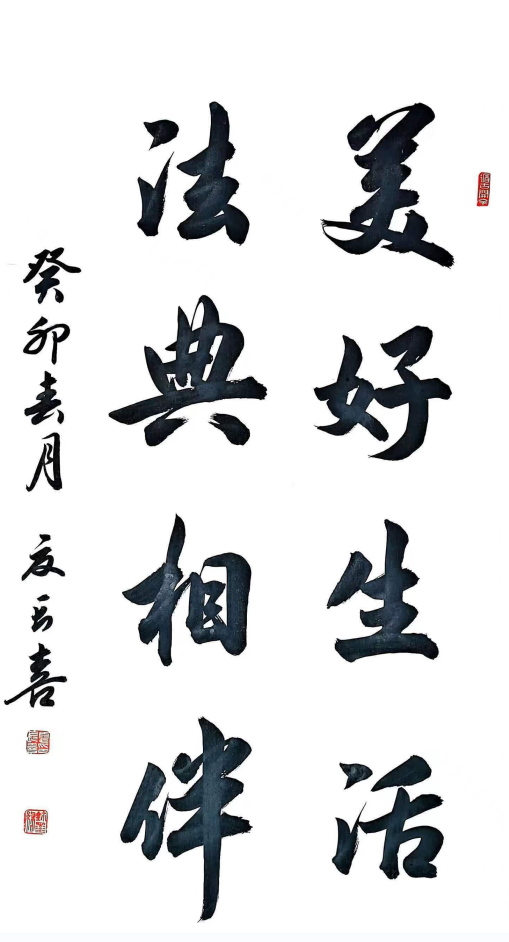 美好生活
法典相伴
癸卯春月
喜